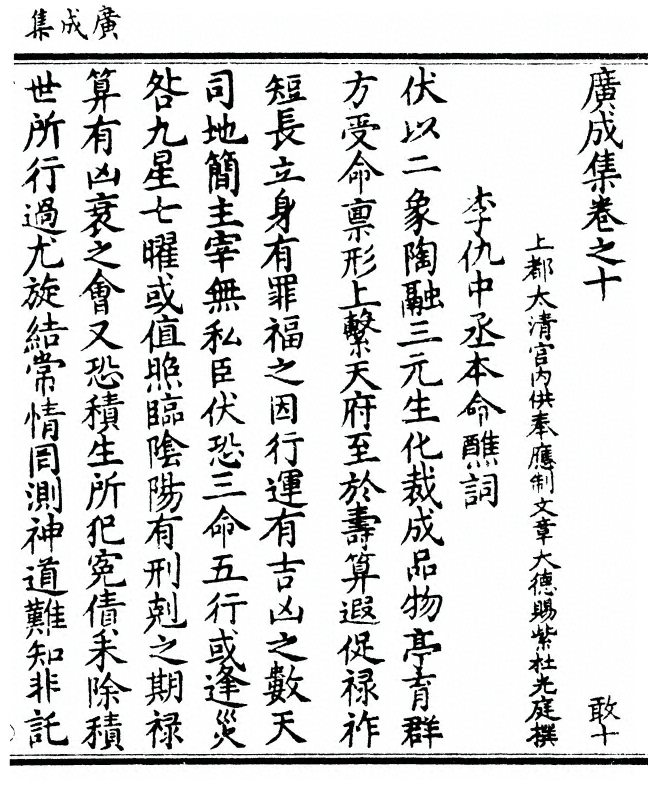 廣成集
廣成集卷之十
上都太清宮內供奉應制文章大德賜紫杜光庭撰
敢十
李仇中丞本命醮詞
伏以二象陶融三元生化裁成品物亭育群
方受命禀形上繫天府至於壽算遐促禄祚
短長立身有罪福之因行運有吉凶之數天
司地簡主宰無私臣伏恐三命五行或逢災
咎九星七曜或值照臨陰陽有刑剋之期禄
算有凶衰之會又恐積生所犯寃債未除積
世所行過尤旋結常情罔測神道難知非託